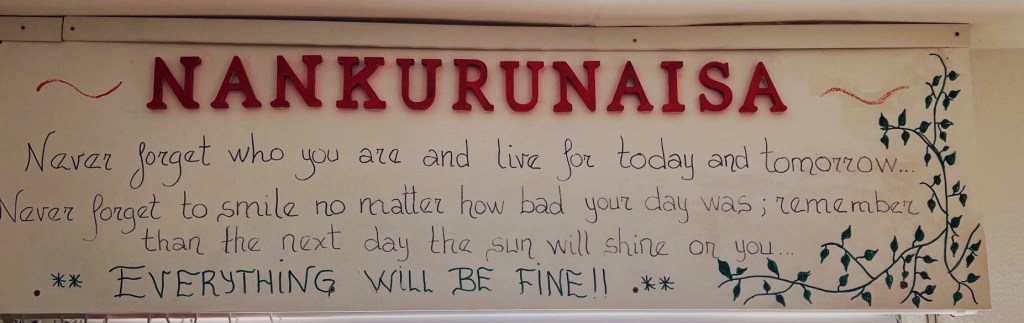 NANKURUNAISA
Never forget who you are and live for today and tomorrow...
Never forget to smile no matter how bad your day was; remember
than the next day the sun will shine on you...
** EVERYTHING WILL BE FINE!! **